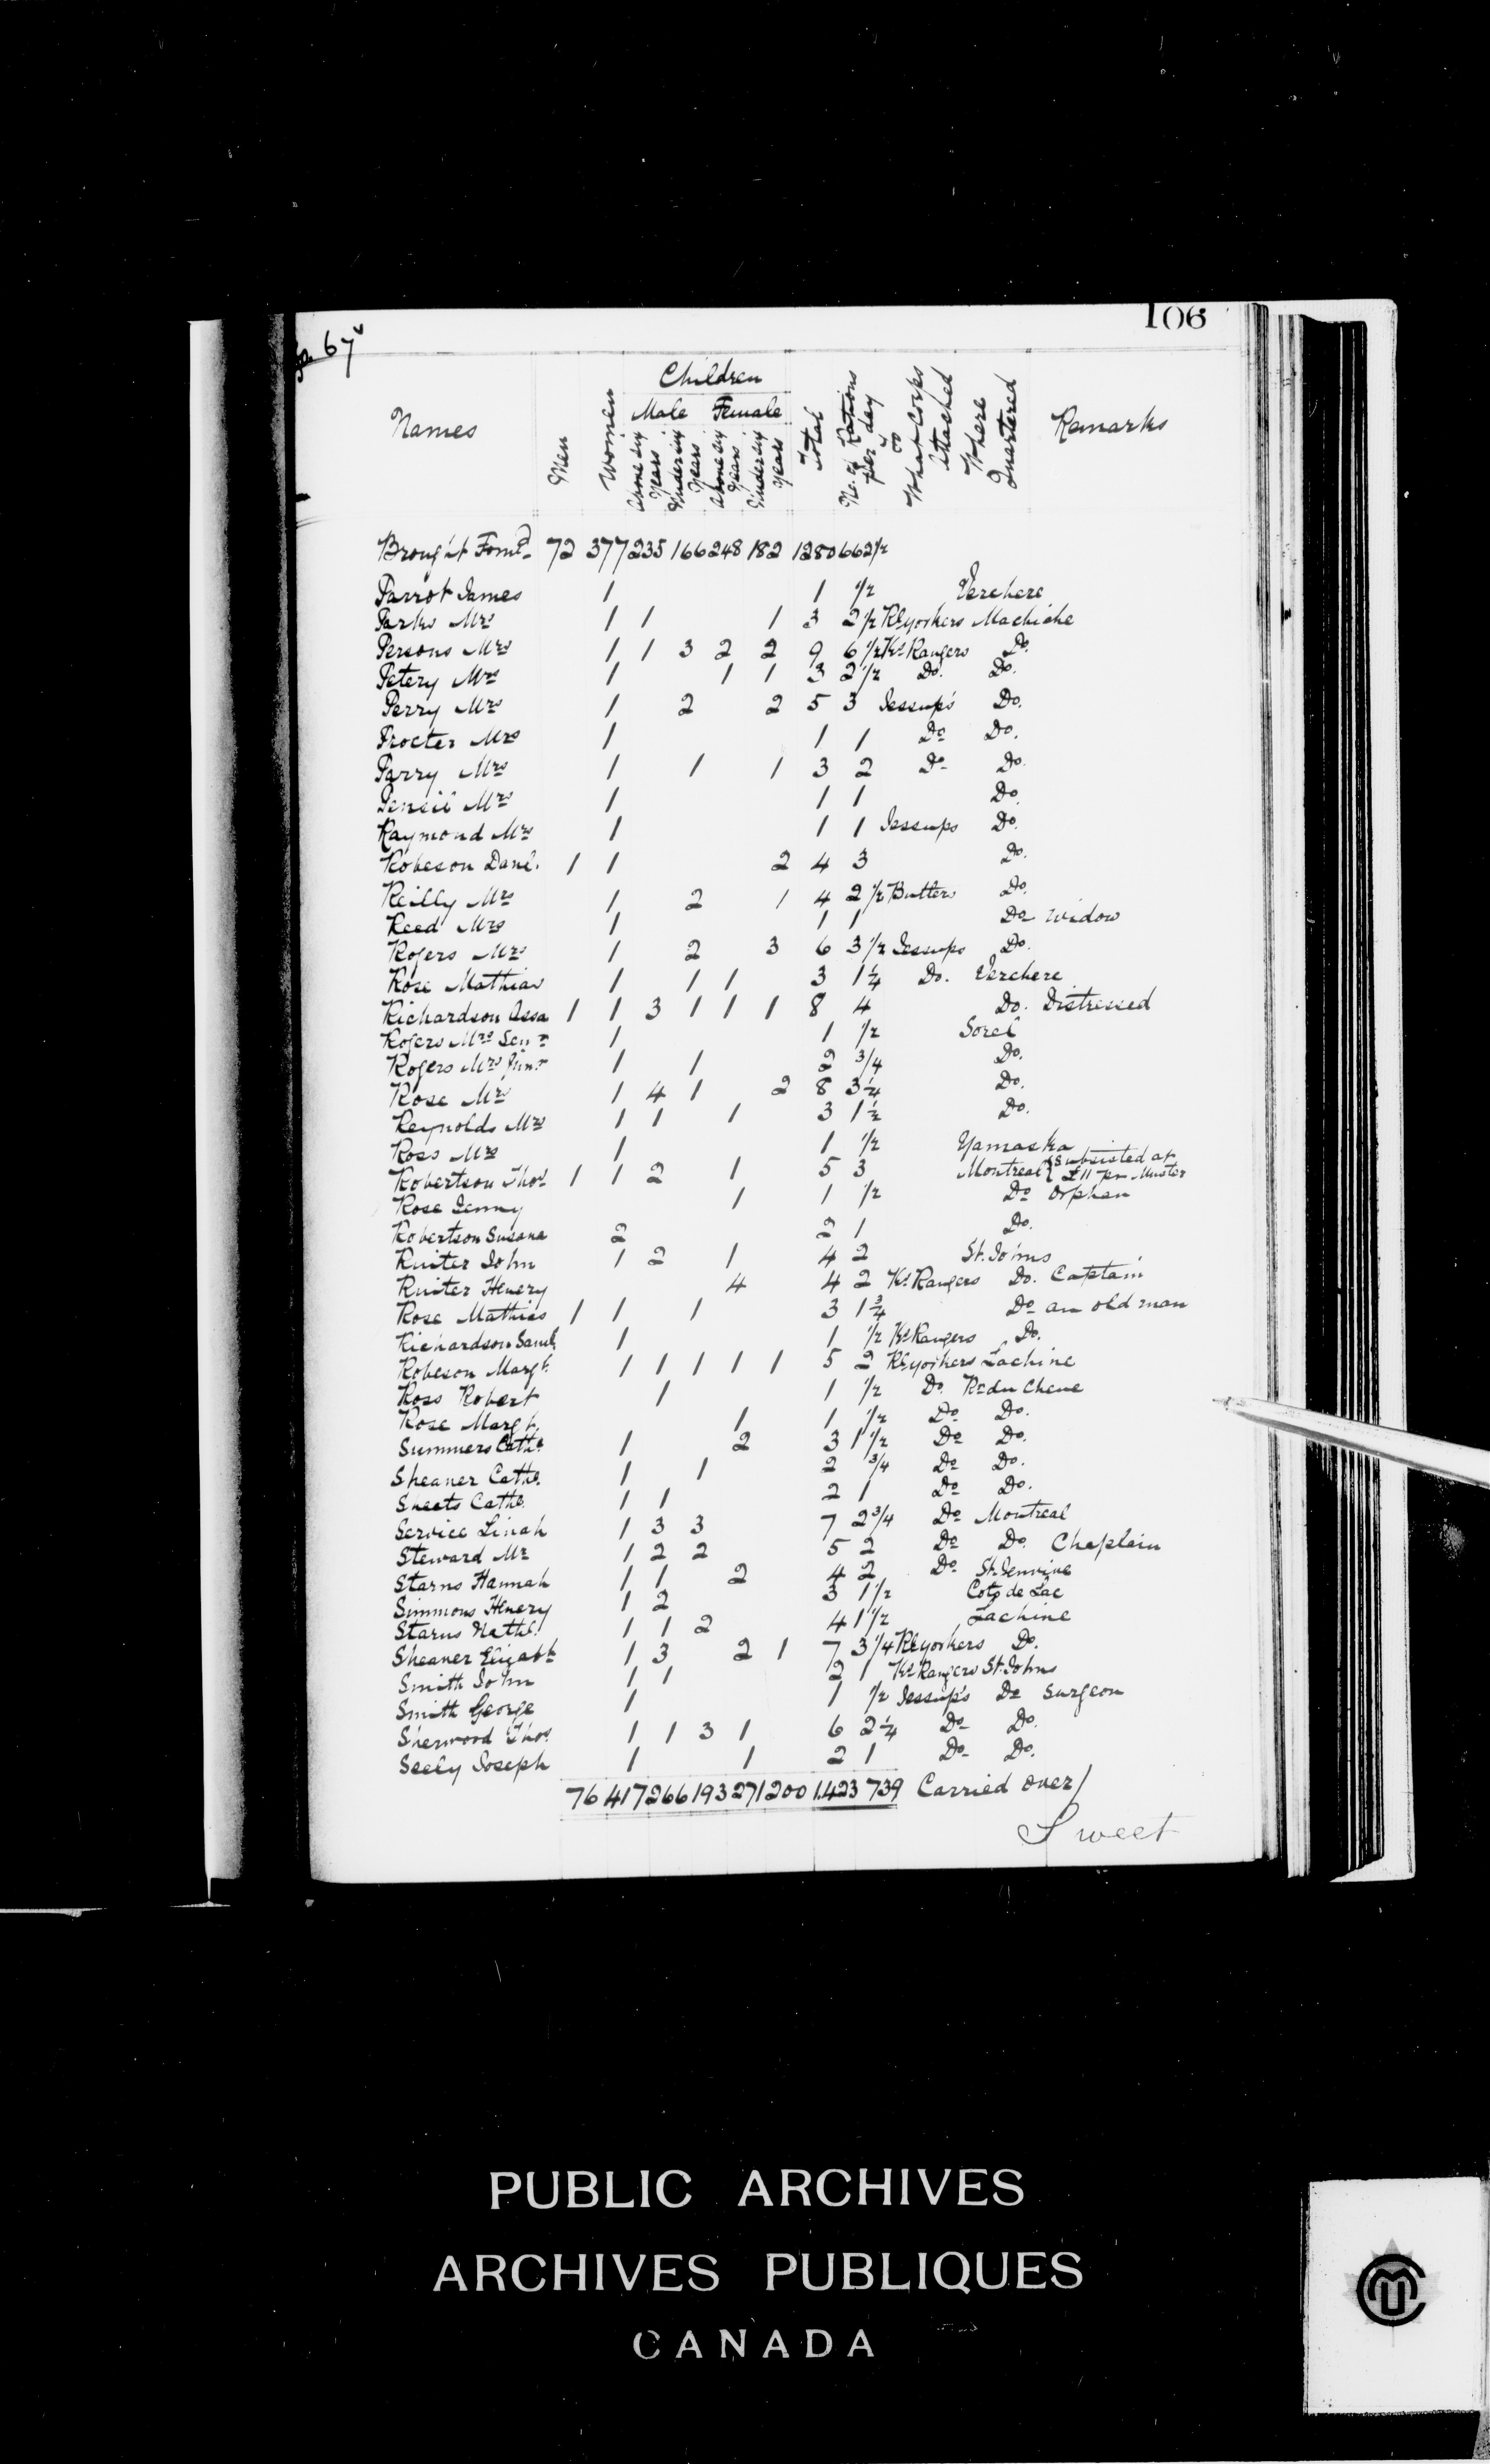 106
p. 67
Names Men Women Children Male Above six Years Under six Years Female Above six Years Under six Years Total No. of Rations per day To What Corps attached Where Quartered Remarks
Brought Forwd 72 377 235 166 248 182 1280 662 1/2
Parrot James 1 1 1/2 Verchere
Parks Mrs 1 1 1 3 2 1/2 Rl yorkers Machiche
Persons Mrs 1 1 3 2 2 9 6 1/2 Ks Rangers Do.
Petery Mrs 1 1 1 3 2 1/2 Do. Do.
Perry Mrs 1 2 2 5 3 Jessup's Do.
Procter Mrs 1 1 1 Do Do.
Parry Mrs 1 1 1 3 2 Do Do.
Pencil Mrs 1 1 1 Do.
Raymond Mrs 1 1 1 Jessups Do.
Robeson Danl. 1 1 2 4 3 Do.
Reilly Mrs 1 2 1 4 2 1/2 Butlers Do.
Reed Mrs 1 1 1 Do Widow
Rogers Mrs 1 2 3 6 3 1/2 Jessups Do.
Rose Mathias 1 1 1 3 1 1/4 Do. Verchere
Richardson Assa 1 1 3 1 1 1 8 4 Do. Distressed
Rogers Mrs Senr 1 1 1/2 Sorel
Rogers Mrs Junr 1 1 2 3/4 Do.
Rose Mrs 1 4 1 2 8 3 1/4 Do.
Reynolds Mrs 1 1 1 3 1 1/2 Do.
Ross Mrs 1 1 1/2 Yamaska
Robertson Thos 1 1 2 1 5 3 Montreal { Subsisted at £11 per Muster
Rose Jenny 1 1 1/2 Do Orphan
Robertson Susana 2 2 1 Do.
Ruiter John 1 2 1 4 2 St. Johns
Ruiter Henery 4 4 2 Ks Rangers Do. Captain
Rose Mathias 1 1 1 3 1 3/4 Do an old man
Richardson Saml 1 1 1/2 Ks Rangers Do.
Robeson Margt. 1 1 1 1 1 5 2 Rl yorkers Lachine
Ross Robert 1 1 1/2 Do. Rr du Chene
Rose Margt. 1 1 1/2 Do Do.
Summers Cathe. 1 2 3 1 1/2 Do Do.
Sheaner Cathe. 1 1 2 3/4 Do Do.
Sheets Cathe. 1 1 2 1 Do Do.
Service Linah 1 3 3 7 2 3/4 Do Montreal
Steward Mr 1 2 2 5 2 Do Do. Chaplain
Starns Hannah 1 1 2 4 2 Do
Simmons Henery 1 2 3 1 1/2 Coto de Lac
Starns Nathl. 1 1 2 4 1 1/2 Lachine
Sheaner Elizabt 1 3 2 1 7 3 1/4 Rl yorkers Do.
Smith John 1 1 2 1 Ks Rangers St. Johns
Smith George 1 1 1/2 Jessup's Do Surgeon
Sherwood Thos. 1 1 3 1 6 2 1/4 Do Do.
Seely Joseph 1 1 2 1 Do Do.
76 417 266 193 271 200 1.423 739 Carried over/
Sweet
PUBLIC ARCHIVES
ARCHIVES PUBLIQUES
CANADA